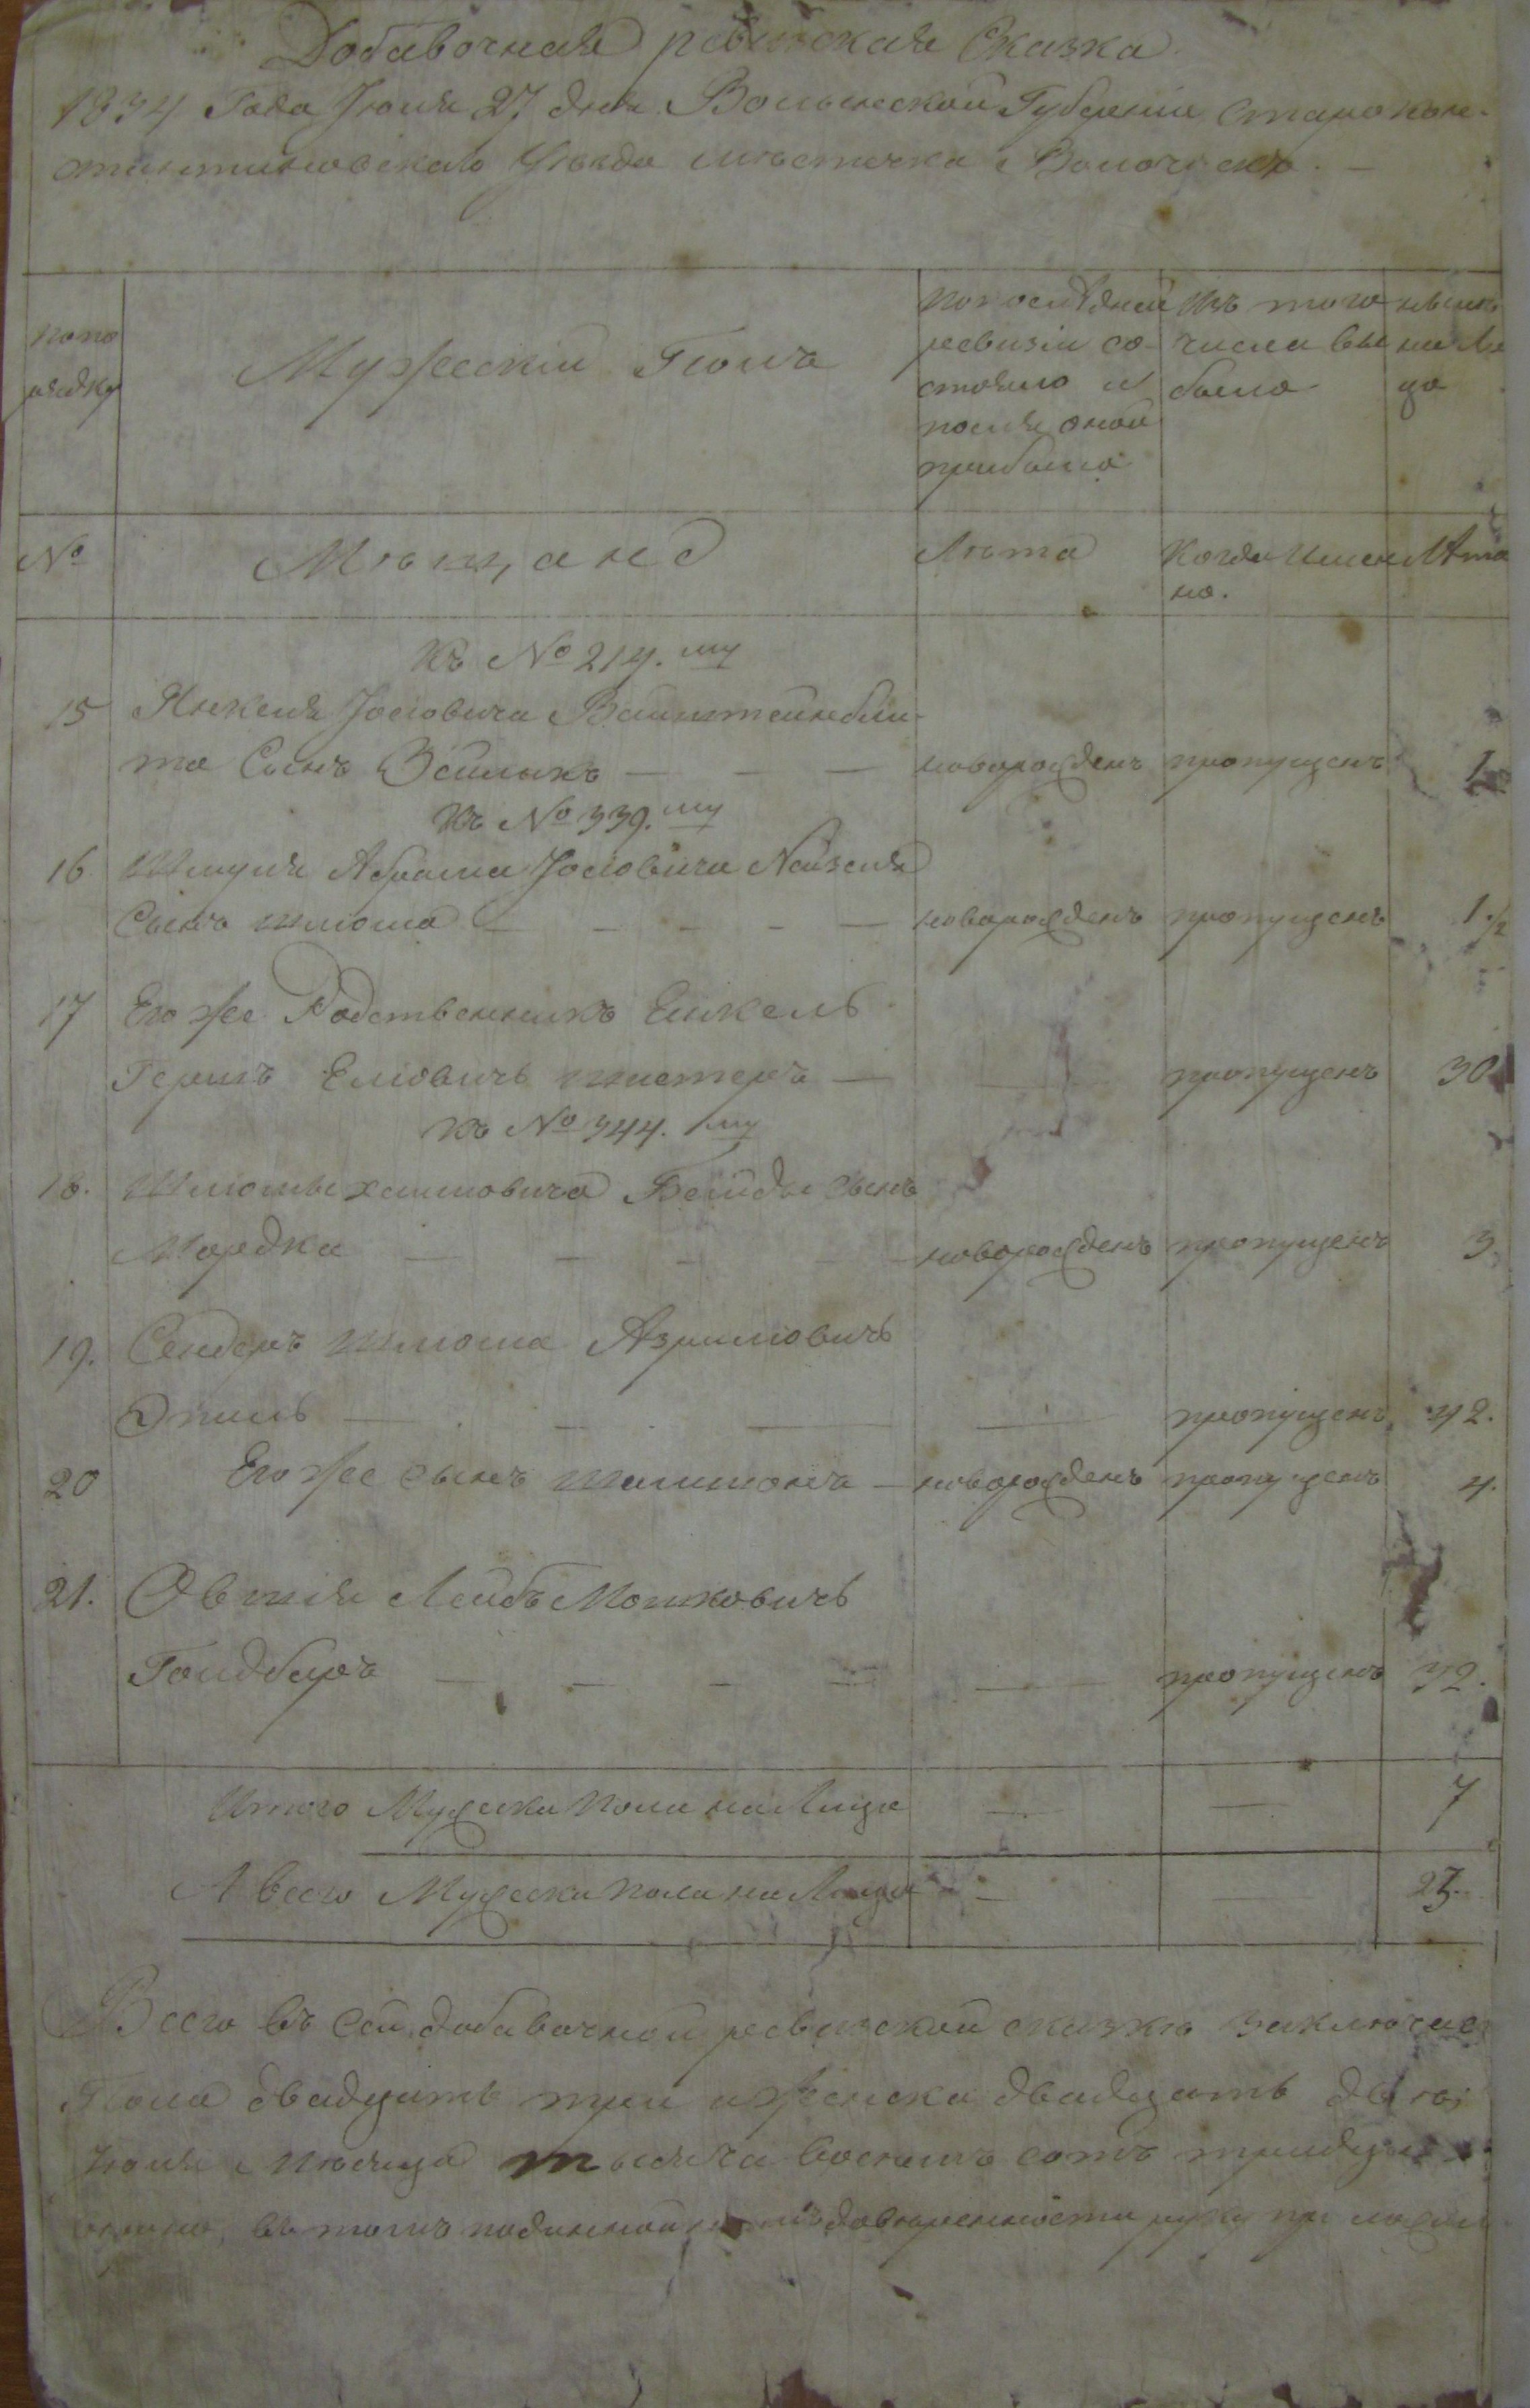 Добавочная ревизская Сказка
1834 Года Июня 27 дня Волынской Губернии Старокон-
стантиновскаго Уѣзда мѣстечка Волочискъ. —
По по
рядку
Мужескій Полъ
По послѣдней
ревизіи со-
стояло и
послѣ оной
прибыло
Изъ того
числа вы
было
нынѣ
на Ли
цо
№
Мѣщанѣ
Лѣта
Когда Имен
но.
Лѣта
Къ № 214.му
15 Янкеля Іосіовича Ваинштеинбли-
та Сынъ Зейлыкъ — — — новорожденъ пропущенъ 1
Къ № 339.му
16 Шмуля Абрама Іосіовича Найзеля
Сынъ Шлюма — — — — новорожденъ пропущенъ 1½
17 Его же Родственникъ Еикель
Гершъ Еліовичь Шистеръ — — пропущенъ 30
Къ № 344.му
18. Шлюмы Хаимовича Беиды Сынъ
Мордко — — — новорожденъ пропущенъ 3
19. Сендеръ Шлюма Азриловичь
Эпиль — — — — пропущенъ 42.
20 Его же сынъ Шлимонъ — новорожденъ пропущенъ 4.
21. Овшія Леибъ Мошковичь
Голдберъ — — — — — пропущенъ 32.
Итого Мужска пола на Лицо — — 7
А всего Мужеска пола на Лицо — — 23.
Всего въ сей добавочной ревизской сказкѣ заключает
Пола двадцать три и женска двадцать двѣ
Іюня мѣсяца тысяча восемъ сотъ тридцать
въ томъ подлинной довѣренности руку приложил